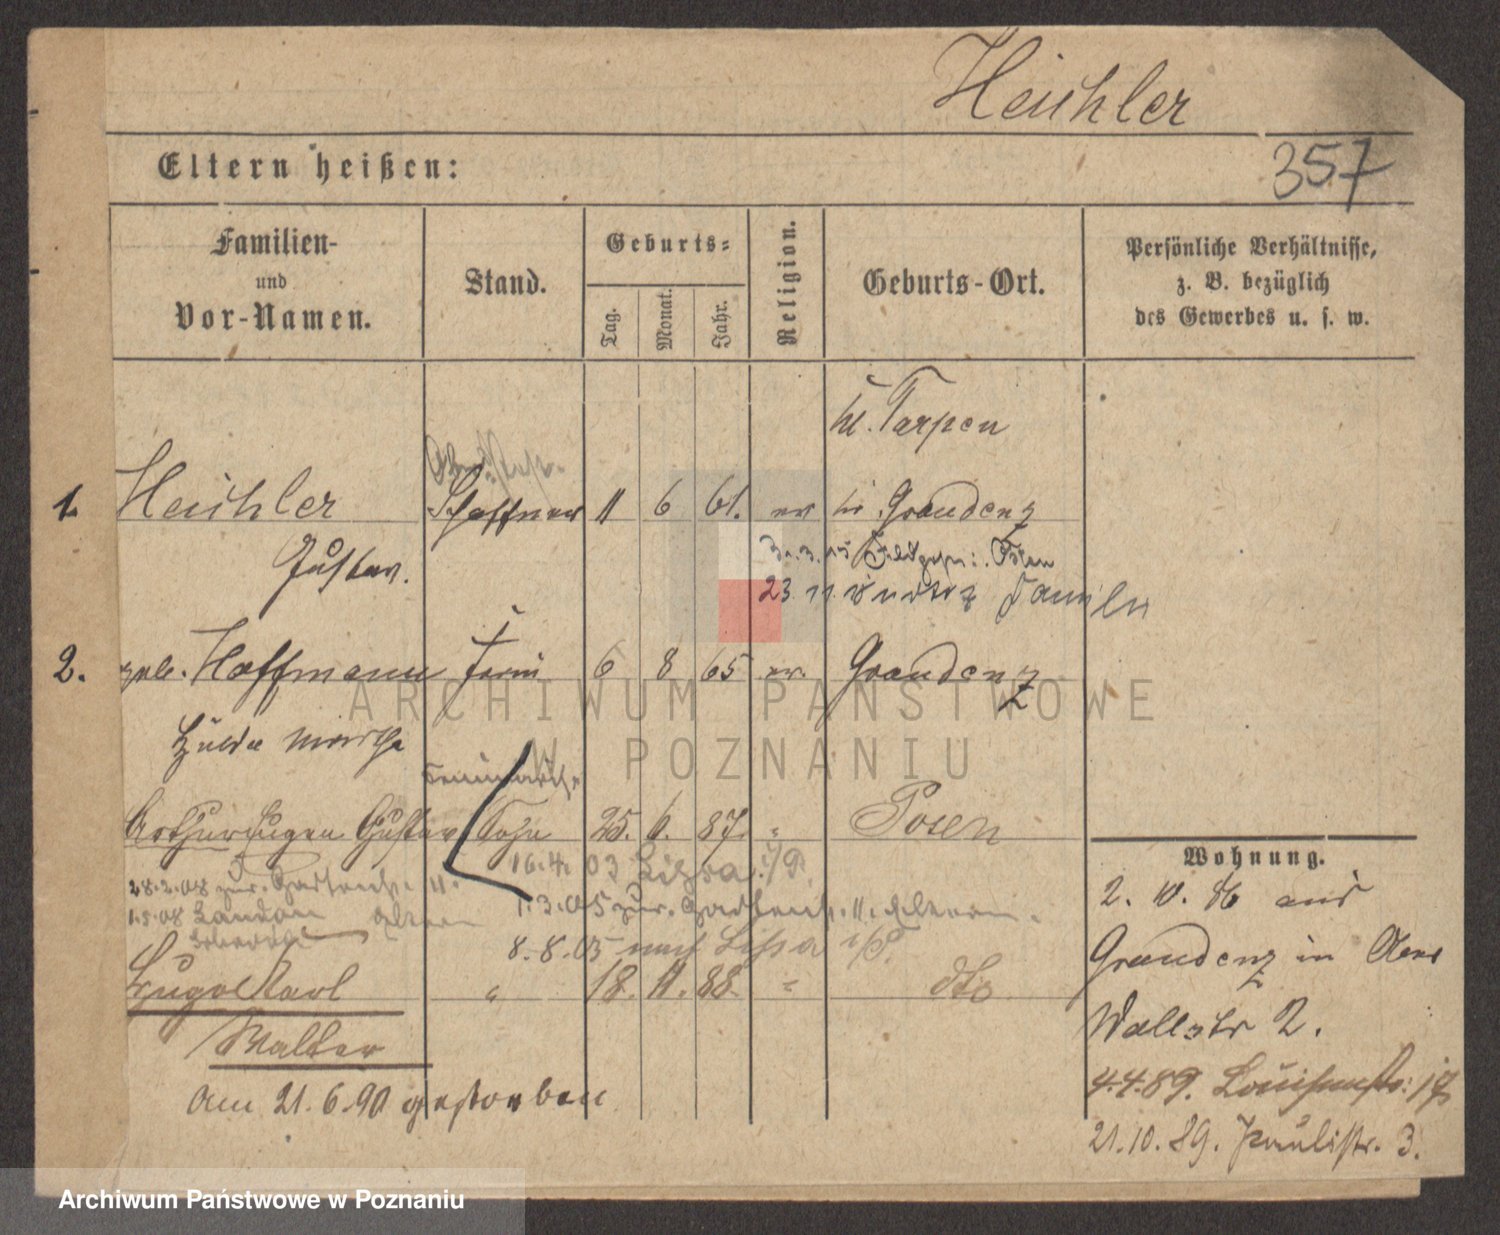 Heuhler
357
Eltern heißen:
Familien- und Vor-Namen.
Stand.
Geburts-
Tag.
Monat.
Jahr.
Religion.
Geburts-Ort.
Persönliche Verhältnisse, z. B. bezüglich des Gewerbes u. s. w.
Kl. Tarpen
1. Heuhler Schaffner 11 6 61. ev Kr. Graudenz
Gustav.
2. geb. Hoffmann Frau 6 8 65 ev. Graudenz
Hulda
Arthur Eugen Gustav Sohn 25. 6. 87. " Posen
16.4. 03 Lissa i/P.
28.2.08 zur.
1.3.05 zur. Eltern.
1.5.08 Landau
8.8.05 nach Lissa i/P.
Hugo Karl " 18. 11. 88. " dto
Walter
am 21.6.90 gestorben
Wohnung.
2. 10. 86 aus
Graudenz in
Wallstr 2.
4.4.89. Louisenstr: 17
21.10.89. Paulistr. 3.
ARCHIWUM PAŃSTWOWE
W POZNANIU
Archiwum Państwowe w Poznaniu